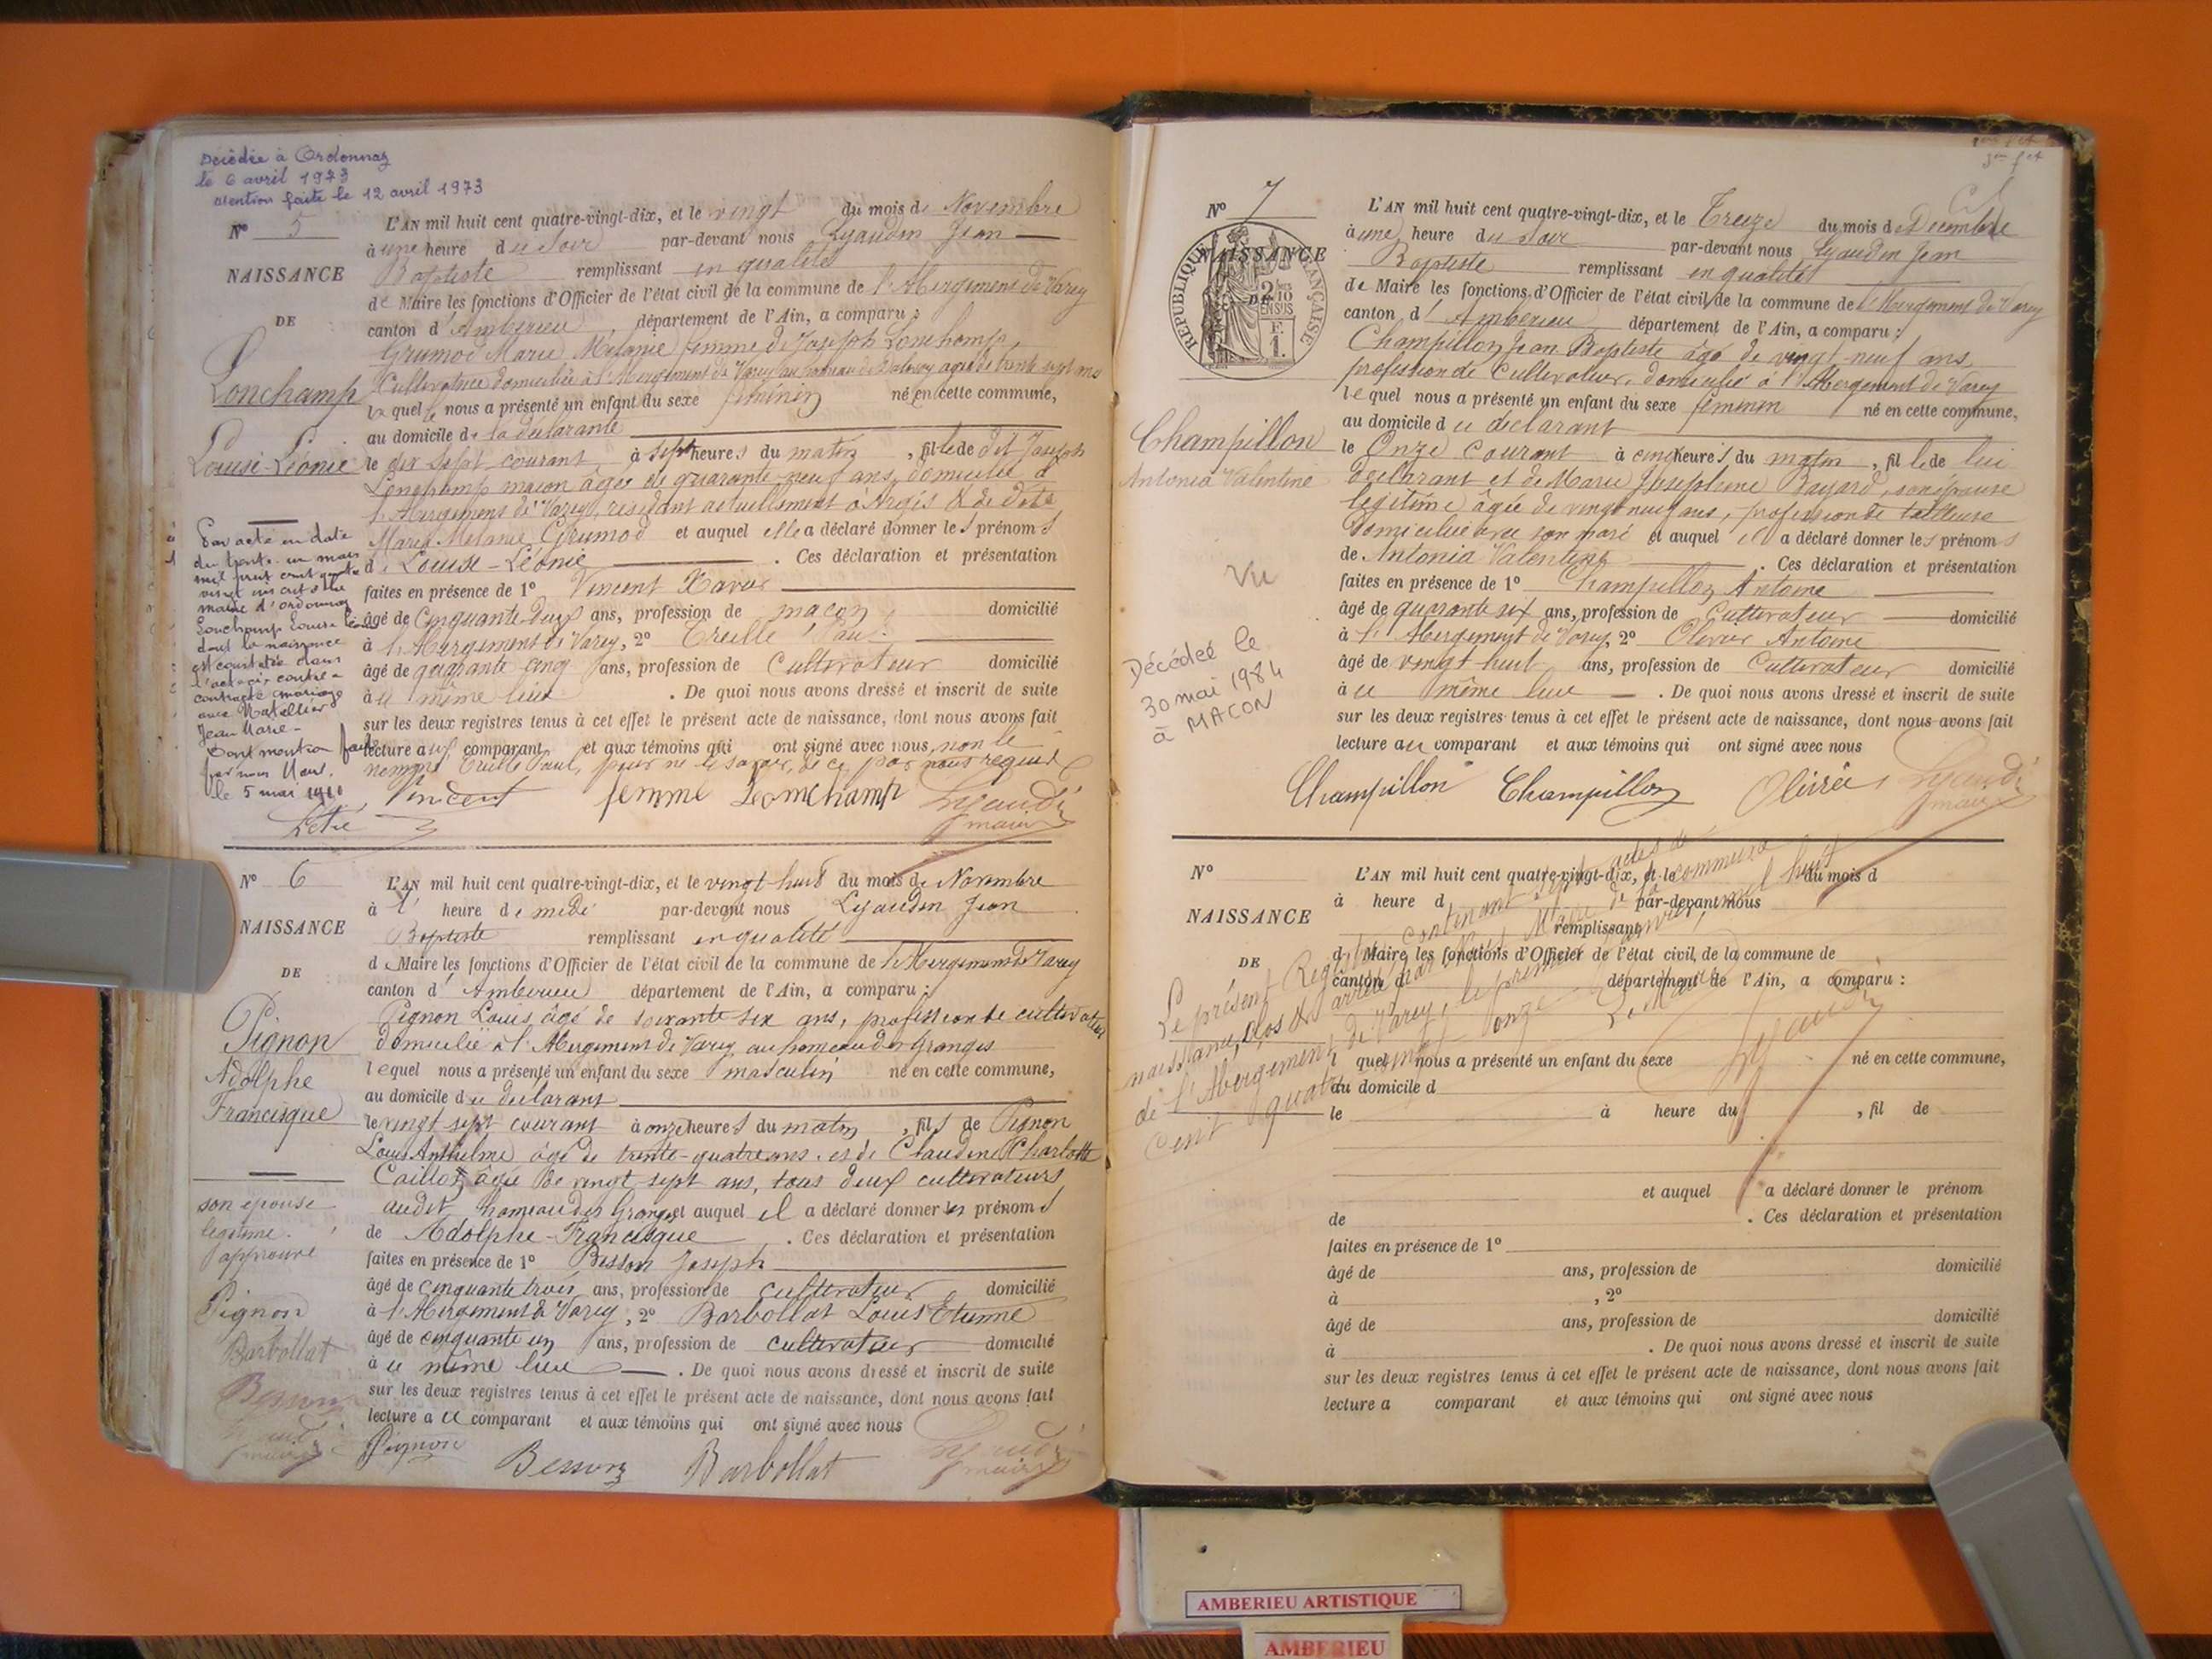 Décédée à Ordonnaz
le 6 avril 1973
Mention faite le 12 avril 1973
N° 5
NAISSANCE
DE
Lonchamp
Louise Léonie
Par acte en date
du trente un mars
mil neuf cent
mairie d'Ordonnaz
Lonchamp Louise Léonie
dont la naissance
est constatée dans
l'acte ci-contre a
contracté mariage
avec
Jean Marie
Dont mention faite
par nous Maire
le 5 mai 1910
L'AN mil huit cent quatre-vingt-dix, et le vingt du mois de Novembre
à une heure du Soir par-devant nous Lyaudin Jean
Baptiste remplissant en qualité
de Maire les fonctions d'Officier de l'état civil de la commune de l'Abergement de Varey
canton d'Ambérieu, département de l'Ain, a comparu :
Grumod Marie Mélanie femme de Joseph Lonchamp
Cultivatrice domiciliée à l'Abergement de Varey au hameau de agée de trente sept ans
laquelle nous a présenté un enfant du sexe féminin né en cette commune,
au domicile de la déclarante
le dix sept courant à sept heures du matin, fille de dit Joseph
Lonchamp maçon âgé de quarante neuf ans, domicilié à
l'Abergement de Varey, résidant actuellement à Argis & de dite
Marie Mélanie Grumod et auquel elle a déclaré donner les prénoms
de Louise-Léonie. Ces déclaration et présentation
faites en présence de 1° Vincent Xavier
âgé de Cinquante deux ans, profession de maçon, domicilié
à l'Abergement de Varey, 2° Treille Paul
âgé de quarante cinq ans, profession de Cultivateur domicilié
à ce même lieu. De quoi nous avons dressé et inscrit de suite
sur les deux registres tenus à cet effet le présent acte de naissance, dont nous avons fait
lecture aux comparant et aux témoins qui ont signé avec nous, non le
nommé Treille Paul, pour ne le savoir, de ce par nous requis
Vincent femme Leomchamp Lyaudin
maire
N° 6
NAISSANCE
DE
Pignon
Adolphe
Francisque
son épouse
légitime.
approuvé
Pignon
Barbollat
Besson
L'AN mil huit cent quatre-vingt-dix, et le vingt-huit du mois de Novembre
à l' heure de midi par-devant nous Lyaudin Jean
Baptiste remplissant en qualité
de Maire les fonctions d'Officier de l'état civil de la commune de l'Abergement de Varey
canton d'Ambérieu département de l'Ain, a comparu :
Pignon Louis, âgé de soixante six ans, profession de cultivateur
domicilié à l'Abergement de Varey au hameau des Granges
lequel nous a présenté un enfant du sexe masculin né en cette commune,
au domicile du déclarant
le vingt sept courant à onze heures du matin, fils de Pignon
Louis Anthelme âgé de trente-quatre ans et de Claudine Charlotte
Caillot âgée de vingt-sept ans, tous deux cultivateurs
audit hameau des Granges et auquel il a déclaré donner les prénoms
de Adolphe-Francisque. Ces déclaration et présentation
faites en présence de 1° Besson Joseph
âgé de cinquante trois ans, profession de cultivateur, domicilié
à l'Abergement de Varey, 2° Barbollat Louis Etienne
âgé de cinquante un ans, profession de cultivateur domicilié
à ce même lieu. De quoi nous avons dressé et inscrit de suite
sur les deux registres tenus à cet effet le présent acte de naissance, dont nous avons fait
lecture au comparant et aux témoins qui ont signé avec nous
Pignon Besson Barbollat Lyaudin
maire
N° 7
NAISSANCE
DE
REPUBLIQUE FRANÇAISE
Champillon
Antonia Valentine
Vu
Décédée le
30 mai 1984
à MACON
L'AN mil huit cent quatre-vingt-dix, et le Treize du mois de Décembre
à une heure du soir par-devant nous Lyaudin Jean
Baptiste remplissant en qualité
de Maire les fonctions d'Officier de l'état civil de la commune de l'Abergement de Varey
canton d'Ambérieu département de l'Ain, a comparu :
Champillon Jean Baptiste âgé de vingt-neuf ans,
profession de Cultivateur, domicilié à l'Abergement de Varey
lequel nous a présenté un enfant du sexe féminin né en cette commune,
au domicile du déclarant
le Onze courant à cinq heures du matin, fille de lui
déclarant et de Marie Joséphine Bayard, son épouse
légitime, âgée de vingt neuf ans, profession de tailleuse
domiciliée avec son mari et auquel il a déclaré donner les prénoms
de Antonia Valentine. Ces déclaration et présentation
faites en présence de 1° Champillon Antoine
âgé de quarante six ans, profession de Cultivateur domicilié
à l'Abergement de Varey, 2° Olivier Antoine
âgé de vingt huit ans, profession de Cultivateur domicilié
à ce même lieu. De quoi nous avons dressé et inscrit de suite
sur les deux registres tenus à cet effet le présent acte de naissance, dont nous avons fait
lecture au comparant et aux témoins qui ont signé avec nous
Champillon Champillon Lyaudin
maire
N°
NAISSANCE
DE
L'AN mil huit cent quatre-vingt-dix, et le du mois d
à heure d par-devant nous
remplissant
d Maire les fonctions d'Officier de l'état civil, de la commune de
canton d département de l'Ain, a comparu :
quel nous a présenté un enfant du sexe né en cette commune,
au domicile d
le à heure du , fil de
et auquel a déclaré donner le prénom
de . Ces déclaration et présentation
faites en présence de 1°
âgé de ans, profession de domicilié
à , 2°
âgé de ans, profession de domicilié
à . De quoi nous avons dressé et inscrit de suite
sur les deux registres tenus à cet effet le présent acte de naissance, dont nous avons fait
lecture a comparant et aux témoins qui ont signé avec nous
Le présent Registre contenant sept actes de
naissance, clos & arrêté par Nous Maire de la commune
de l'Abergement de Varey, le premier janvier, mil huit
cent quatre vingt onze
Le Maire
Lyaudin
AMBERIEU ARTISTIQUE
AMBERIEU